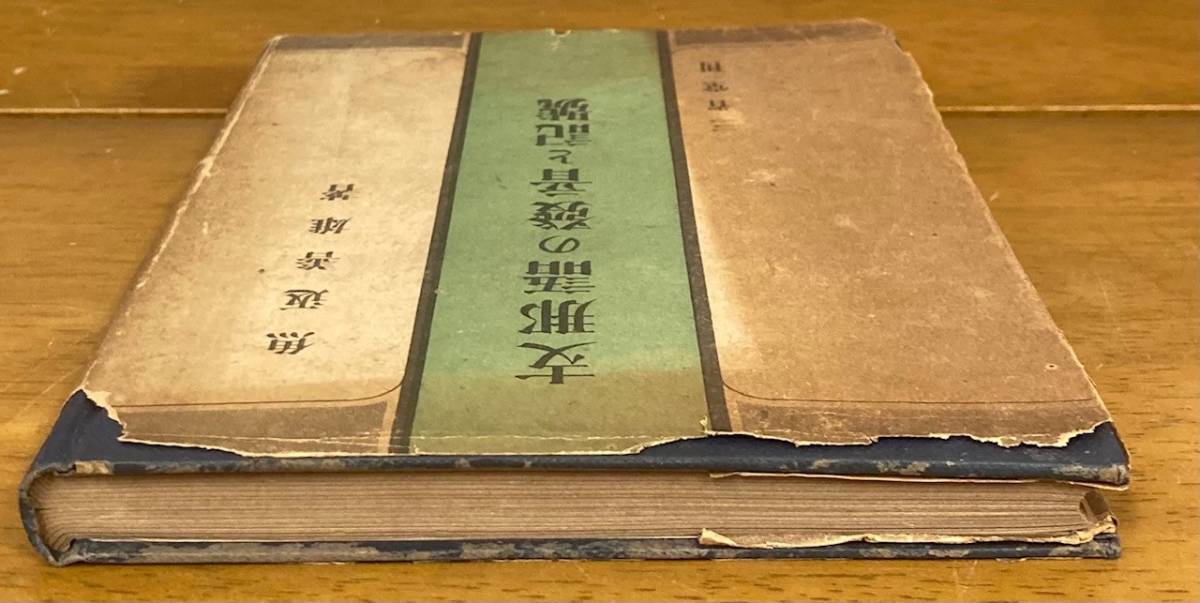 魚返善雄著
支那語の發音と記號
三省堂刊